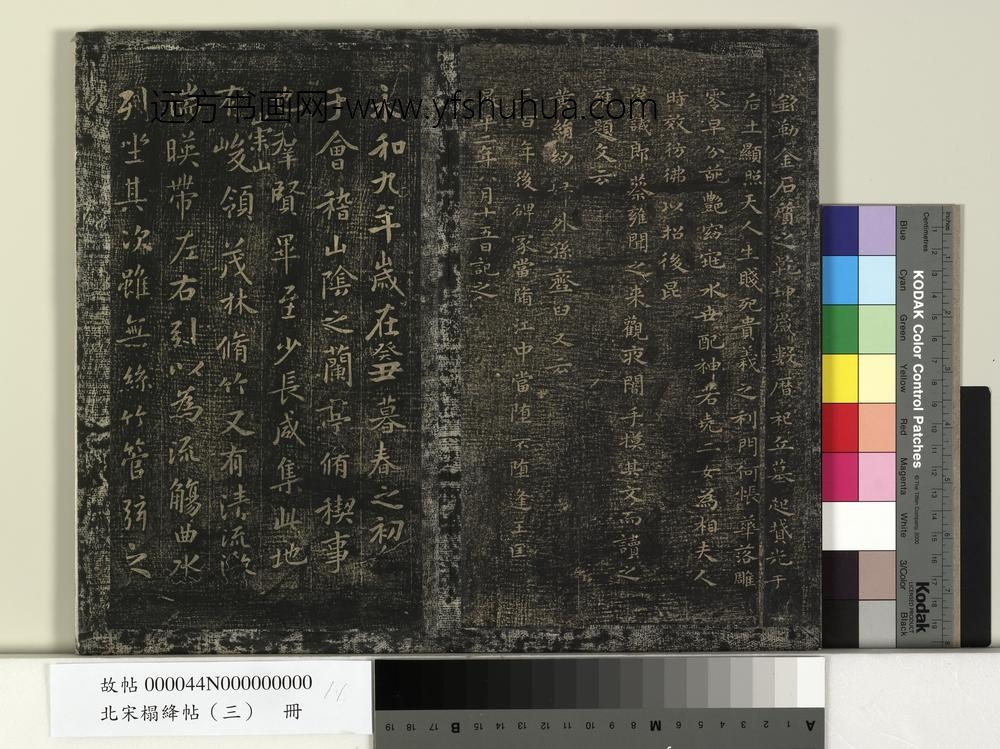 远方书画网 www.yfshuhua.com
銘勒金石質之乾坤歲數曆祀丘墓起墳光于
后土顯照天人生賤死貴義之利門何悵華落雕
零早分葩艷窈窕永世配神若堯二女為相夫人
時效彷彿以招後昆
議郎蔡雍聞之來觀夜闇手摸其文而讀之
題文云
黃絹幼婦外孫齏臼又云
百年後碑冢當墮江中當墮不墮逢王匡
二年八月十五日記之
永和九年歲在癸丑暮春之初
于會稽山陰之蘭亭脩禊事
羣賢畢至少長咸集此地
有崇山
峻領茂林脩竹又有清流激
湍暎帶左右引以為流觴曲水
列坐其次雖無絲竹管弦之
故帖 000044N000000000
北宋榻絳帖（三） 冊
KODAK Color Control Patches
© The Tiffen Company, 2000
Kodak
LICENSED PRODUCT
Inches
Centimetres
Blue
Cyan
Green
Yellow
Red
Magenta
White
3/Color
Black
A 1 2 3 4 5 6 M 8 9 10 11 12 13 14 15 B 17 18 19